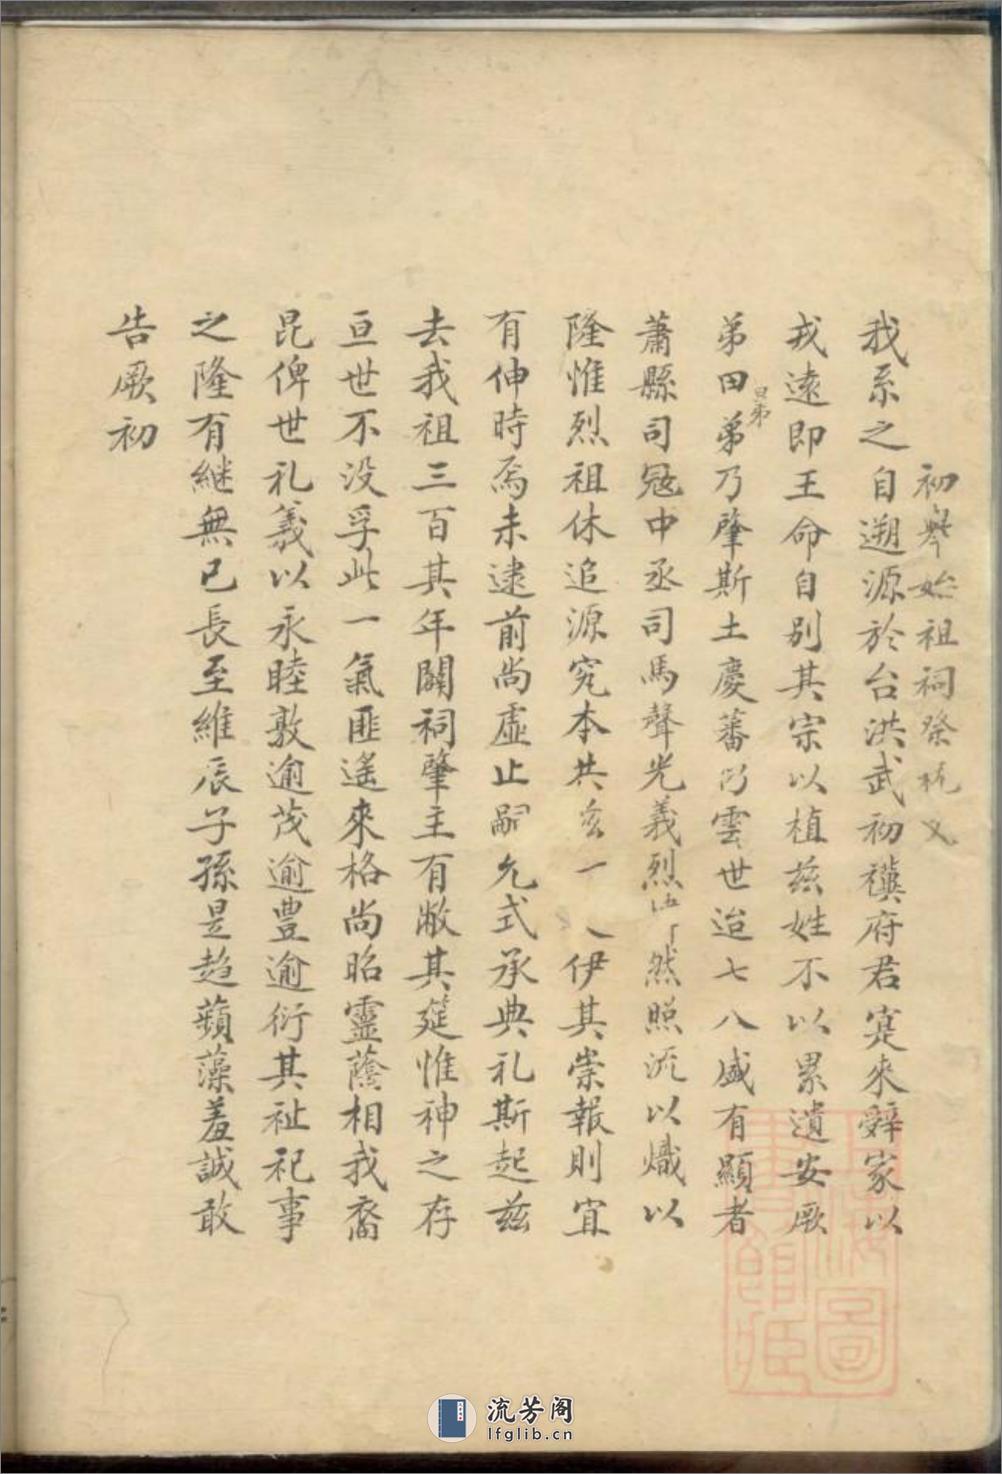 初舉始祖祠祭祝文
我系之自遡源於台洪武初禩府君寔來辭家以
戎遠即王命自別其宗以植茲姓不以累遺安厥
弟田弟乃肇斯土慶蕃乃雲世迨七八盛有顯者
曰弟
蕭縣司冦中丞司馬聲光義烈然照流以熾以
隆惟烈祖休追源究本共玆一人伊其崇報則宜
有伸時焉未逮前尚虛止嗣允式承典礼斯起茲
去我祖三百其年闢祠肇主有敝其筵惟神之存
亘世不没孚此一氣匪遙來格尚昭靈蔭相我裔
昆俾世礼義以永睦敦逾茂逾豊逾衍其祉祀事
之隆有継無已長至維辰子孫是趋蘋藻羞誠敢
告厥初
流芳阁
lfglib.cn